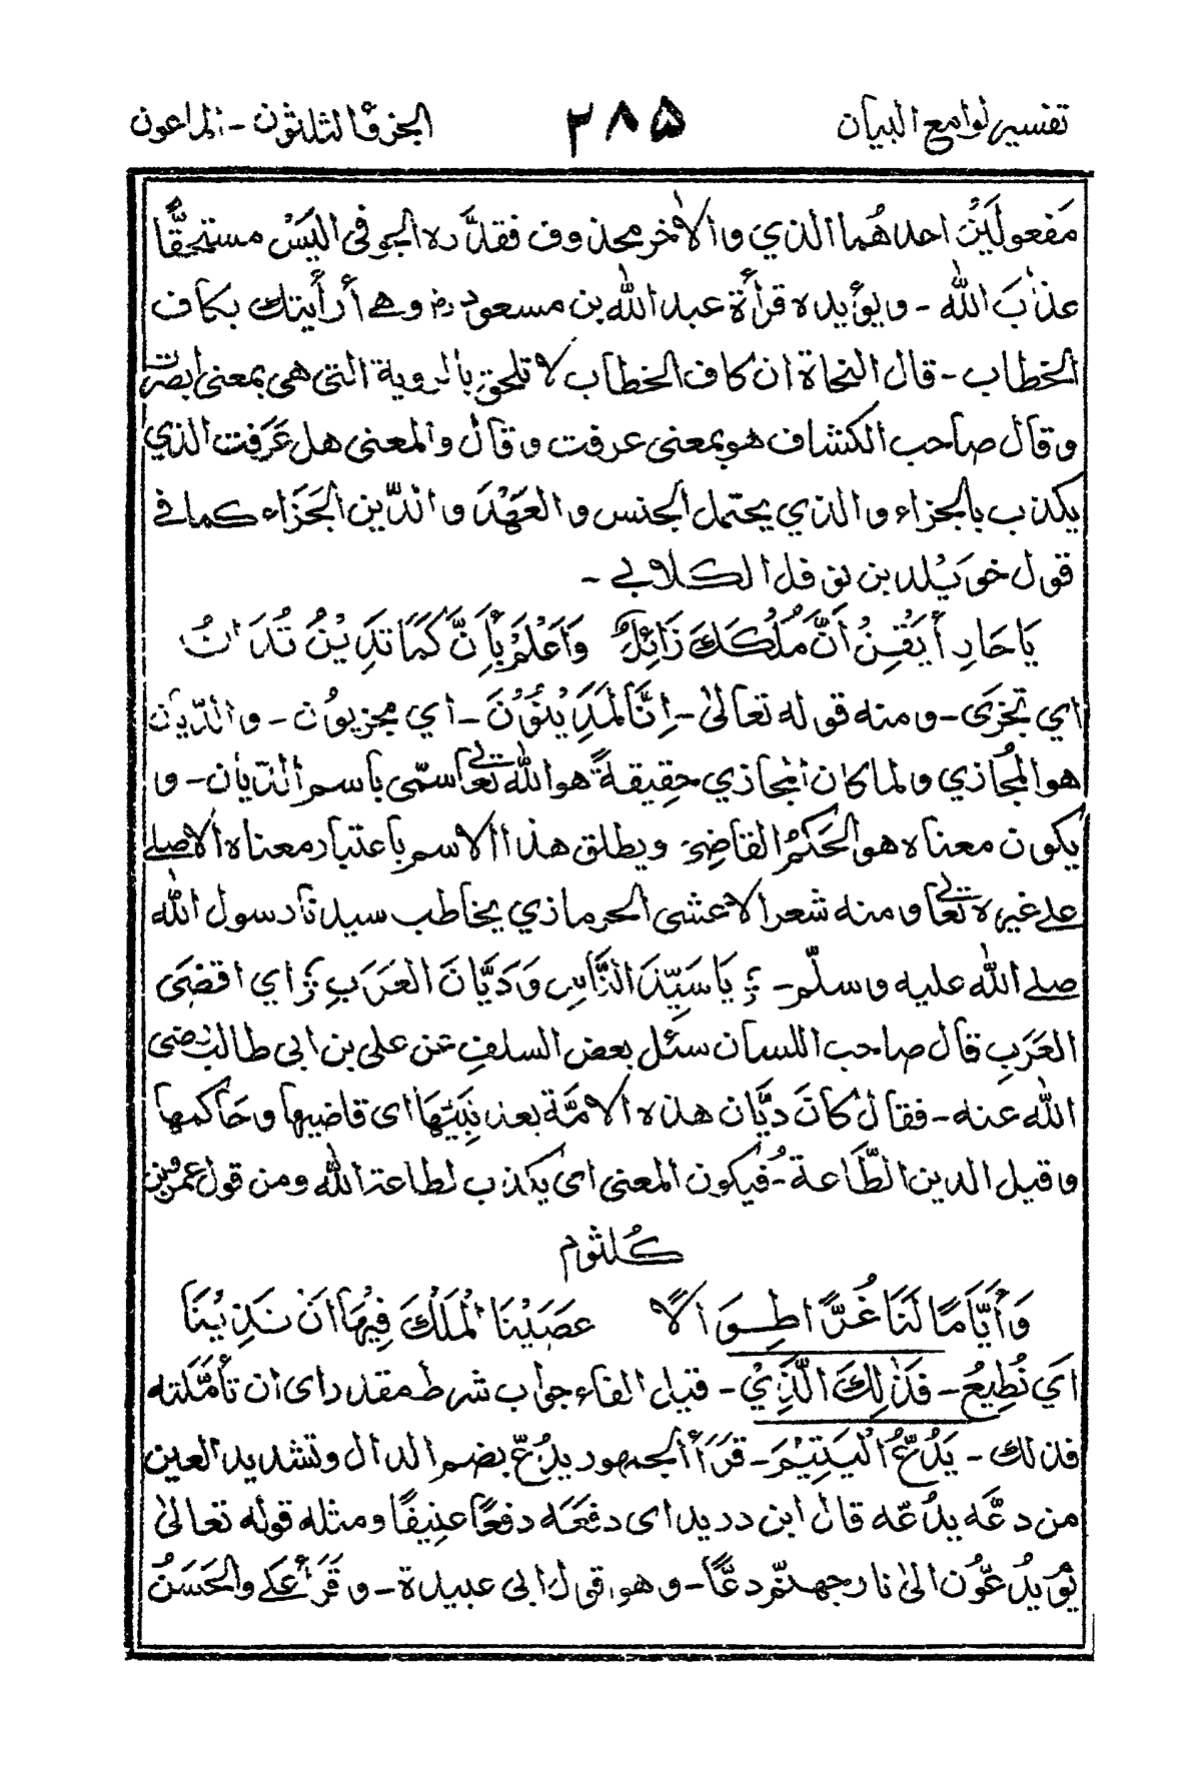 تفسير لوامع البيان ٢٨٥ الجزء الثلثون - الماعون
مَفعولَيْن احدهُما الذي والاٰخر محذوف فقدَّره الجوفي اليَسْ مستحِقًّا
عذٰبَ اللّٰه - ويؤيده قرأة عبد اللّٰه بن مسعود رض وهي أرأيتك بكاف
الخطاب - قال النحاة ان كاف الخطاب لا تلحق بالروية التي هي بمعنى ابصرت
وقال صاحب الكشاف هو بمعنى عرفت وقال والمعنى هل عَرَفت الذي
يكذب بالجزاء والذي يحتمل الجنس والعَهْدَ والدّين الجَزَاء كما في
قول خويلد بن نوفل الكلابي -
يَاحَارِ أَيقِنُ أَنَّ مُلُكَكَ زَائِلٌ وَاَعْلَمْ بِأَنَّ كَمَا تَدِيْنُ تُدَانُ
اي تجزى - ومنه قوله تعالىٰ - اِنَّا لَمَدِيْنُوْنَ - اي مجزيون - والدّيان
هو المُجازي ولما كان المجازي حقِيقةً هو اللّٰه تعالىٰ سمّى باسم الديان - و
يكون معناه هو الحَكَمُ القاضِي ويطلق هذا الاسم باعتبار معناه الاصلے
علے غيره تعالىٰ ومنه شعر الاعشى الحرمازي يخاطب سيدنا رسول اللّٰه
صلے اللّٰه عليه وسلّم - ع يَا سَيِّدَ النَّاسِ وَدَيَّانَ العَرَبِ ع اي اقضَى
العَرَبِ قال صاحب اللسان سئل بعض السلفِ عن علي بن ابي طالب رضى
اللّٰه عنه - فقال كَانَ ديَّان هٰذه الامَّة بعد نبِيّهَا اى قاضيها وحَاكمها
وقيل الدين الطَّاعة - فيكون المعنى اى يكذب لطاعة اللّٰه ومن قول عمروبن
كُلثوم
وَأَيَّامًا لَنَا غُرًّا طِوَالًا عَصَيْنَا الْمَلْكَ فِيْهَا اَنْ نَدِيْنَا
اَي نُطِيعُ - فَذٰلِكَ الَّذِيْ - قيل الفاء جواب شرط مقدر اى ان تأمّلته
فذلك - يَدُعُّ الْيَتِيْمَ - قَرَأَ الجمهور يدُعّ بضم الدال وتشديد العين
من دعَّه يدُعّه قال ابن دريد اى دفعَه دفعًا عنِيفًا ومثله قوله تعالىٰ
يَوْمَ يدُعُّون الىٰ نار جهنّم دعًّا - وهو قول ابى عبيدة - وقَرَأَ علي والحَسَنُ